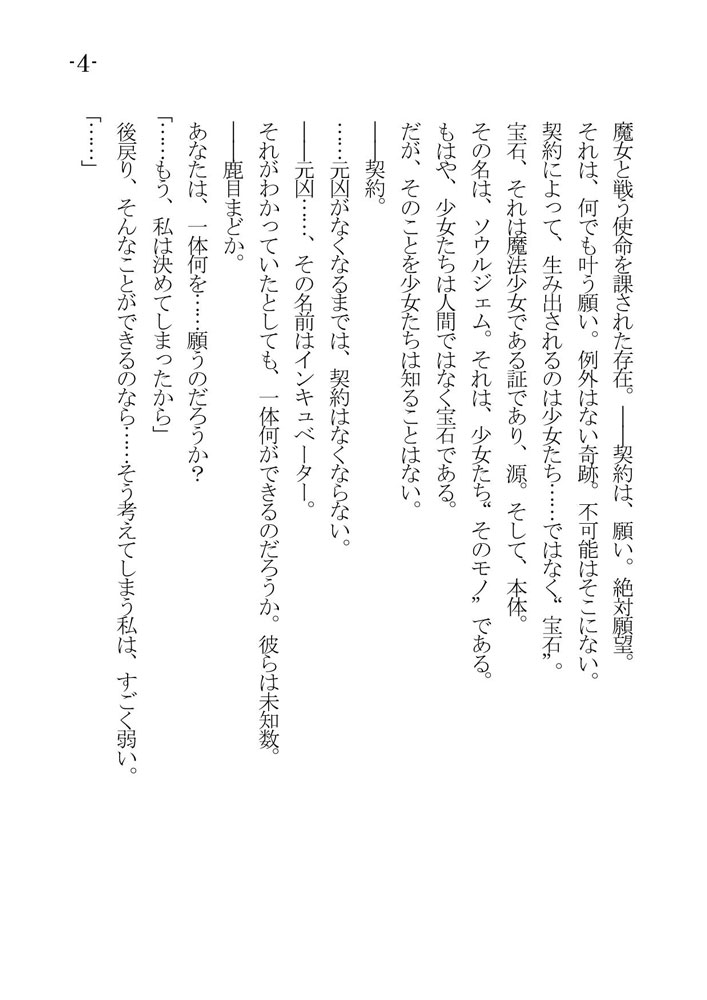 -4-
魔女と戦う使命を課された存在。――契約は、願い。絶対願望。
それは、何でも叶う願い。例外はない奇跡。不可能はそこにない。
契約によって、生み出されるのは少女たち……ではなく“宝石”。
宝石、それは魔法少女である証であり、源。そして、本体。
その名は、ソウルジェム。それは、少女たち“そのモノ”である。
もはや、少女たちは人間ではなく宝石である。
だが、そのことを少女たちは知ることはない。
――契約。
……元凶がなくなるまでは、契約はなくならない。
――元凶……、その名前はインキュベーター。
それがわかっていたとしても、一体何ができるのだろうか。彼らは未知数。
――鹿目まどか。
あなたは、一体何を……願うのだろうか？
「……もう、私は決めてしまったから」
後戻り、そんなことができるのなら……そう考えてしまう私は、すごく弱い。
「……」